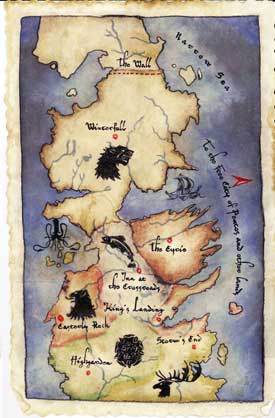 Narrow Sea
the Wall
Winterfell
To the free cities of Pentos and other lands
the Eyrie
Inn at
the Crossroads
King's Landing
Casterly Rock
Storm's End
Highgarden